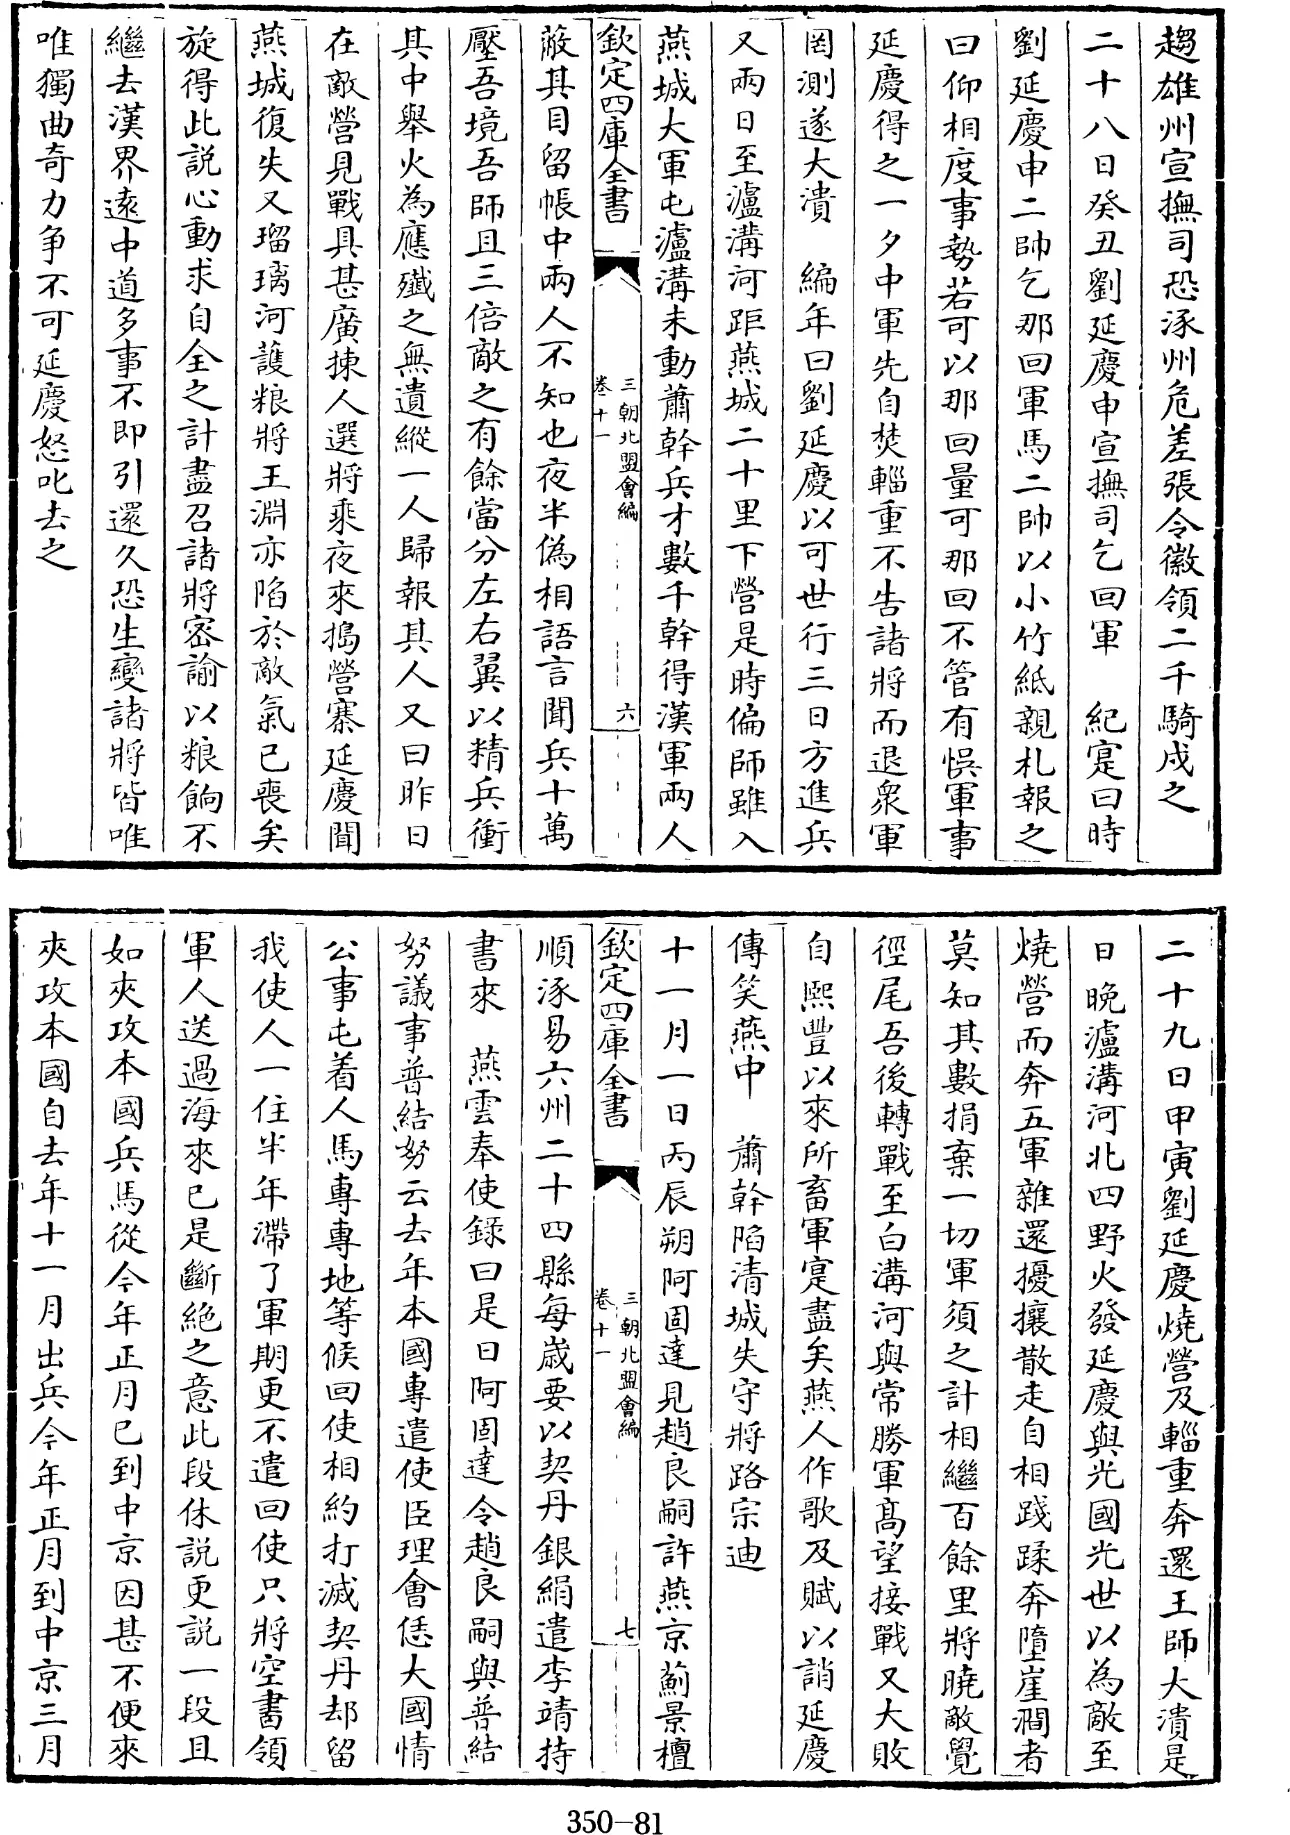 趨雄州宣撫司恐涿州危差張令徽領二千騎戍之
二十八日癸丑劉延慶申宣撫司乞回軍　紀寔曰時
劉延慶申二帥乞那回軍馬二帥以小竹紙親札報之
曰仰相度事勢若可以那回量可那回不管有悞軍事
延慶得之一夕中軍先自焚輜重不告諸將而退衆軍
罔測遂大潰　編年曰劉延慶以可世行三日方進兵
又兩日至瀘溝河距燕城二十里下營是時偏師雖入
燕城大軍屯瀘溝未動蕭幹兵才數千幹得漢軍兩人
欽定四庫全書　三朝北盟會編卷十一　六
蔽其目留帳中兩人不知也夜半偽相語言聞兵十萬
壓吾境吾師且三倍敵之有餘當分左右翼以精兵衝
其中舉火為應殲之無遺縱一人歸報其人又曰昨日
在敵營見戰具甚廣揀人選將乘夜來搗營寨延慶聞
燕城復失又瑠璃河護粮將王淵亦陷於敵氣已喪矣
旋得此説心動求自全之計盡召諸將密諭以粮餉不
繼去漢界遠中道多事不即引還久恐生變諸將皆唯
唯獨曲奇力争不可延慶怒叱去之
二十九日甲寅劉延慶燒營及輜重奔還王師大潰是
日晚瀘溝河北四野火發延慶與光國光世以為敵至
燒營而奔五軍雜還擾攘散走自相踐蹂奔墮崖澗者
莫知其數捐棄一切軍須之計相繼百餘里將曉敵覺
徑尾吾後轉戰至白溝河與常勝軍髙望接戰又大敗
自熙豐以來所畜軍寔盡矣燕人作歌及賦以誚延慶
傳笑燕中　蕭幹陷清城失守將路宗迪
十一月一日丙辰朔阿固達見趙良嗣許燕京薊景檀
欽定四庫全書　三朝北盟會編卷十一　七
順涿易六州二十四縣每嵗要以契丹銀絹遣李靖持
書來　燕雲奉使録曰是日阿固達令趙良嗣與普結
努議事普結努云去年本國專遣使臣理會恁大國情
公事屯着人馬專專地等候回使相約打滅契丹却留
我使人一住半年滯了軍期更不遣回使只將空書領
軍人送過海來已是斷絶之意此段休説更説一段且
如夾攻本國兵馬從今年正月已到中京因甚不便來
夾攻本國自去年十一月出兵今年正月到中京三月
350-81